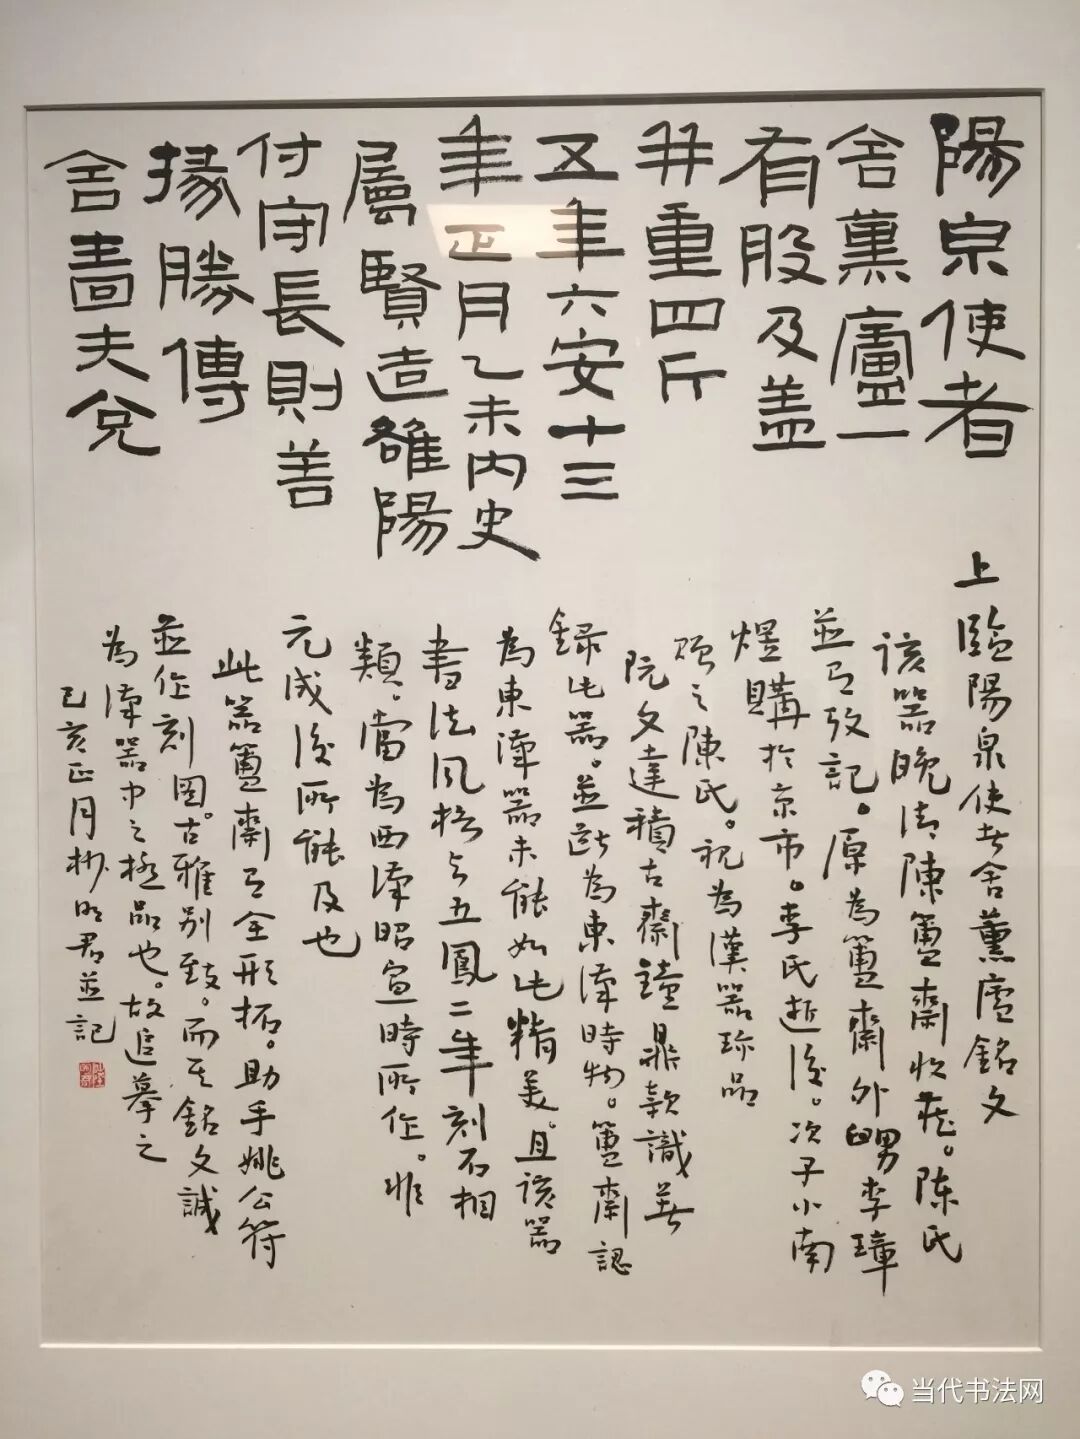 陽泉使者
舍薰廬一
有股及盖
并重四斤
五年六安十三
年正月乙未內史
屬賢造雒陽
付守長則善
掾勝傳
舍嗇夫兌
上臨陽泉使者舍薰廬銘文
該器晚清陳簠齋收藏。陈氏
並有攷記。原為簠齋外舅李璋
煜購於京市。李氏逝後。次子小南
贈之陳氏。視為漢器珍品
阮文達積古齋鐘鼎款識著
錄此器。並斷為東漢時物。簠齋認
為東漢器未能如此精美。且該器
書法風格与五鳳二年刻石相
類。當為西漢昭宣時所作。非
元成後所能及也
此器簠齋有全形拓。助手姚公符
並作刻圖。古雅别致。而其銘文誠
為漢器中之極品也。故追摹之
己亥正月彬明君並記
当代书法网